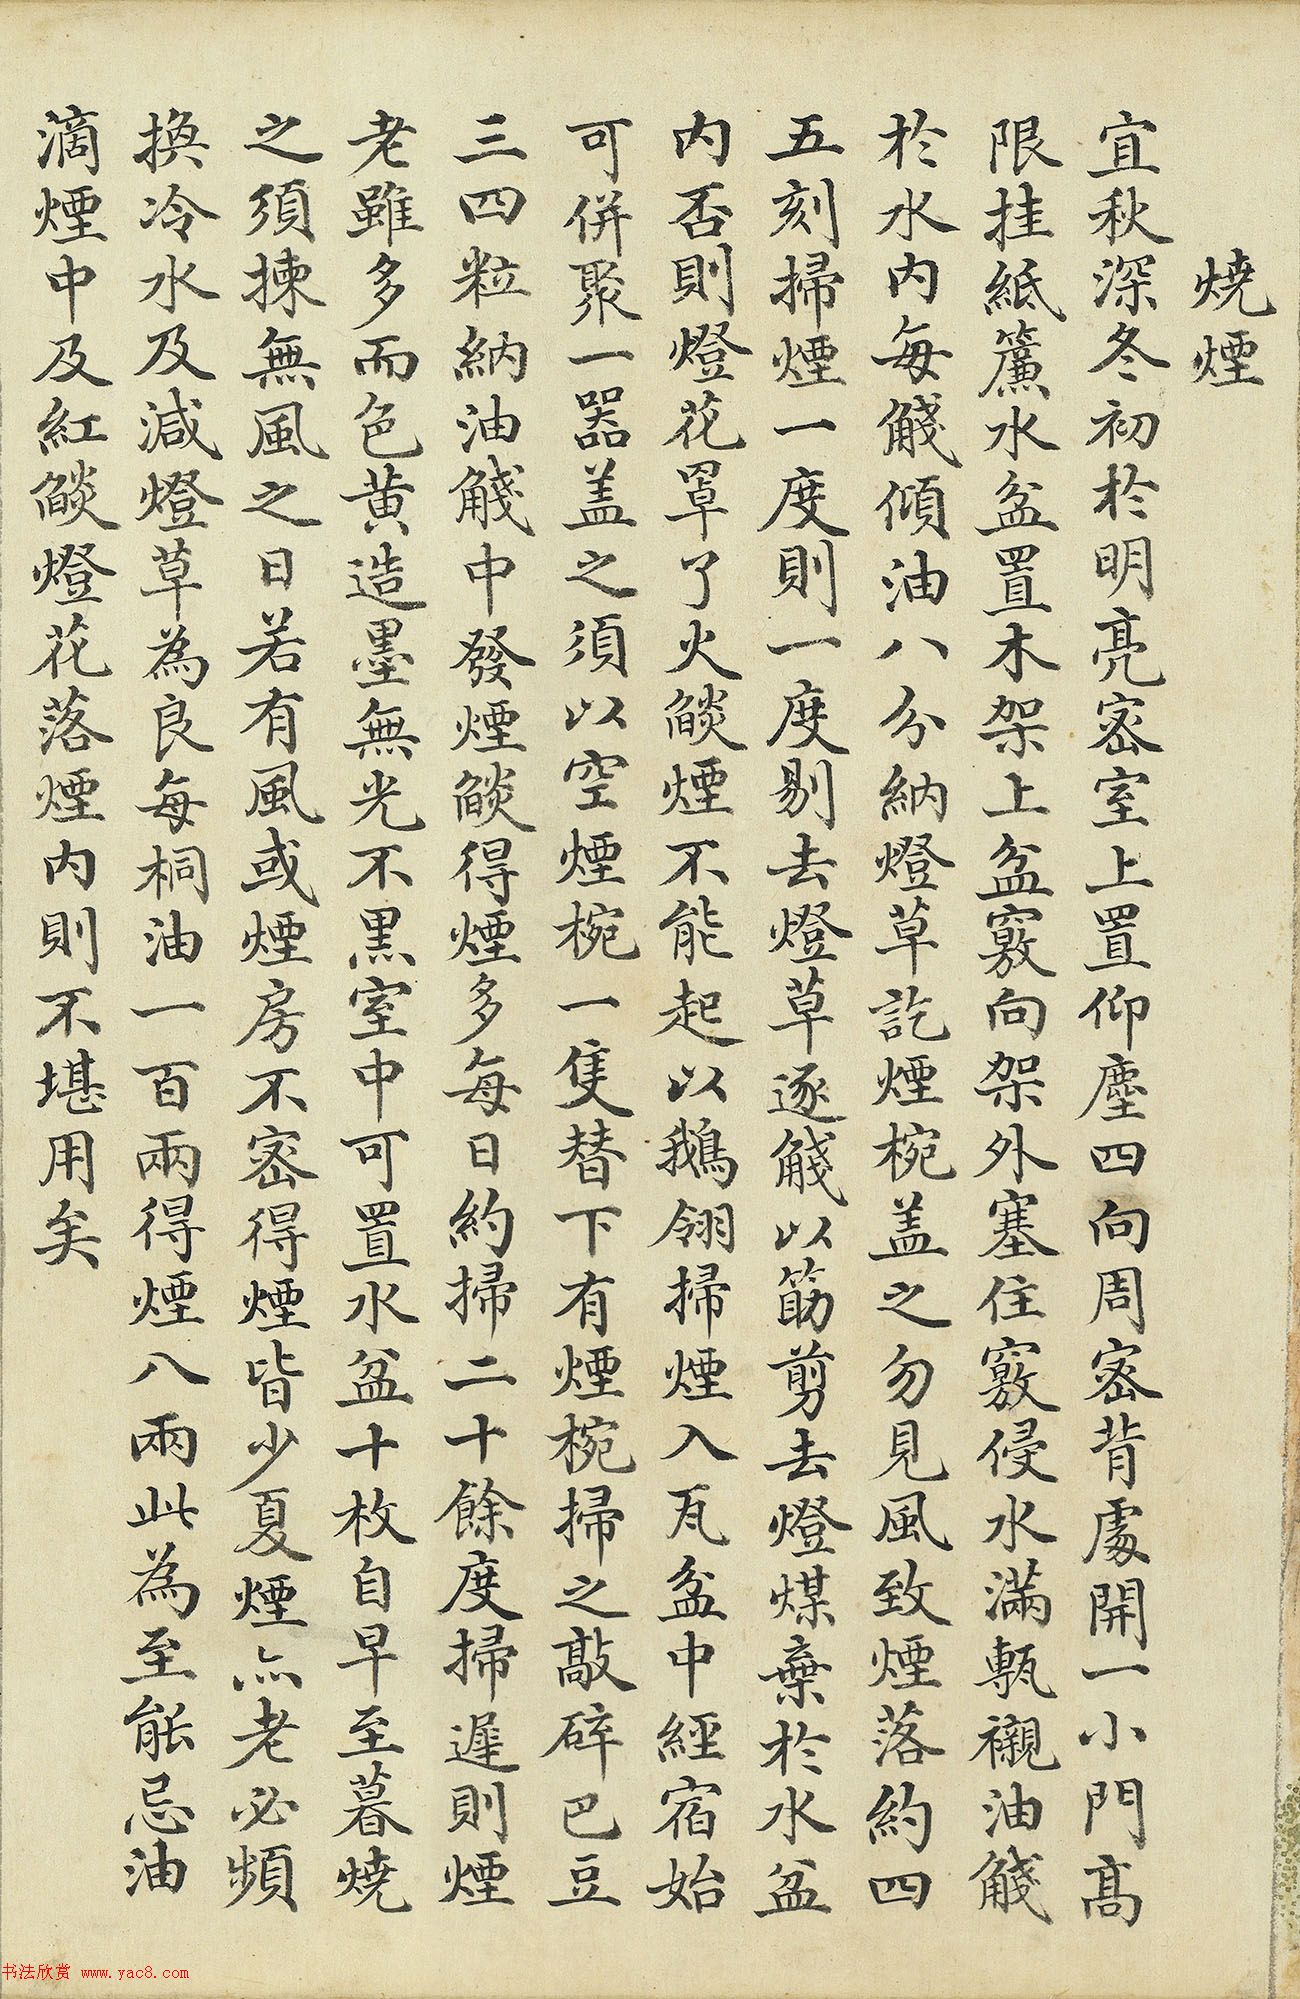 燒煙
宜秋深冬初於明亮密室上置仰塵四向周密背處開一小門高
限挂紙簾水盆置木架上盆竅向架外塞住竅侵水滿甎襯油觽
於水内每觽傾油八分納燈草訖煙椀盖之勿見風致煙落約四
五刻掃煙一度則一度剔去燈草逐觽以筯剪去燈煤棄於水盆
内否則燈花罩了火燄煙不能起以鵝翎掃煙入瓦盆中經宿始
可併聚一器盖之須以空煙椀一隻替下有煙椀掃之敲碎巴豆
三四粒納油觽中發煙燄得煙多每日約掃二十餘度掃遲則煙
老雖多而色黄造墨無光不黒室中可置水盆十枚自早至暮燒
之須揀無風之日若有風或煙房不密得煙皆少夏煙亦老必頻
換冷水及減燈草為良每桐油一百兩得煙八兩此為至能忌油
滴煙中及紅燄燈花落煙内則不堪用矣
书法欣赏 www.yac8.com